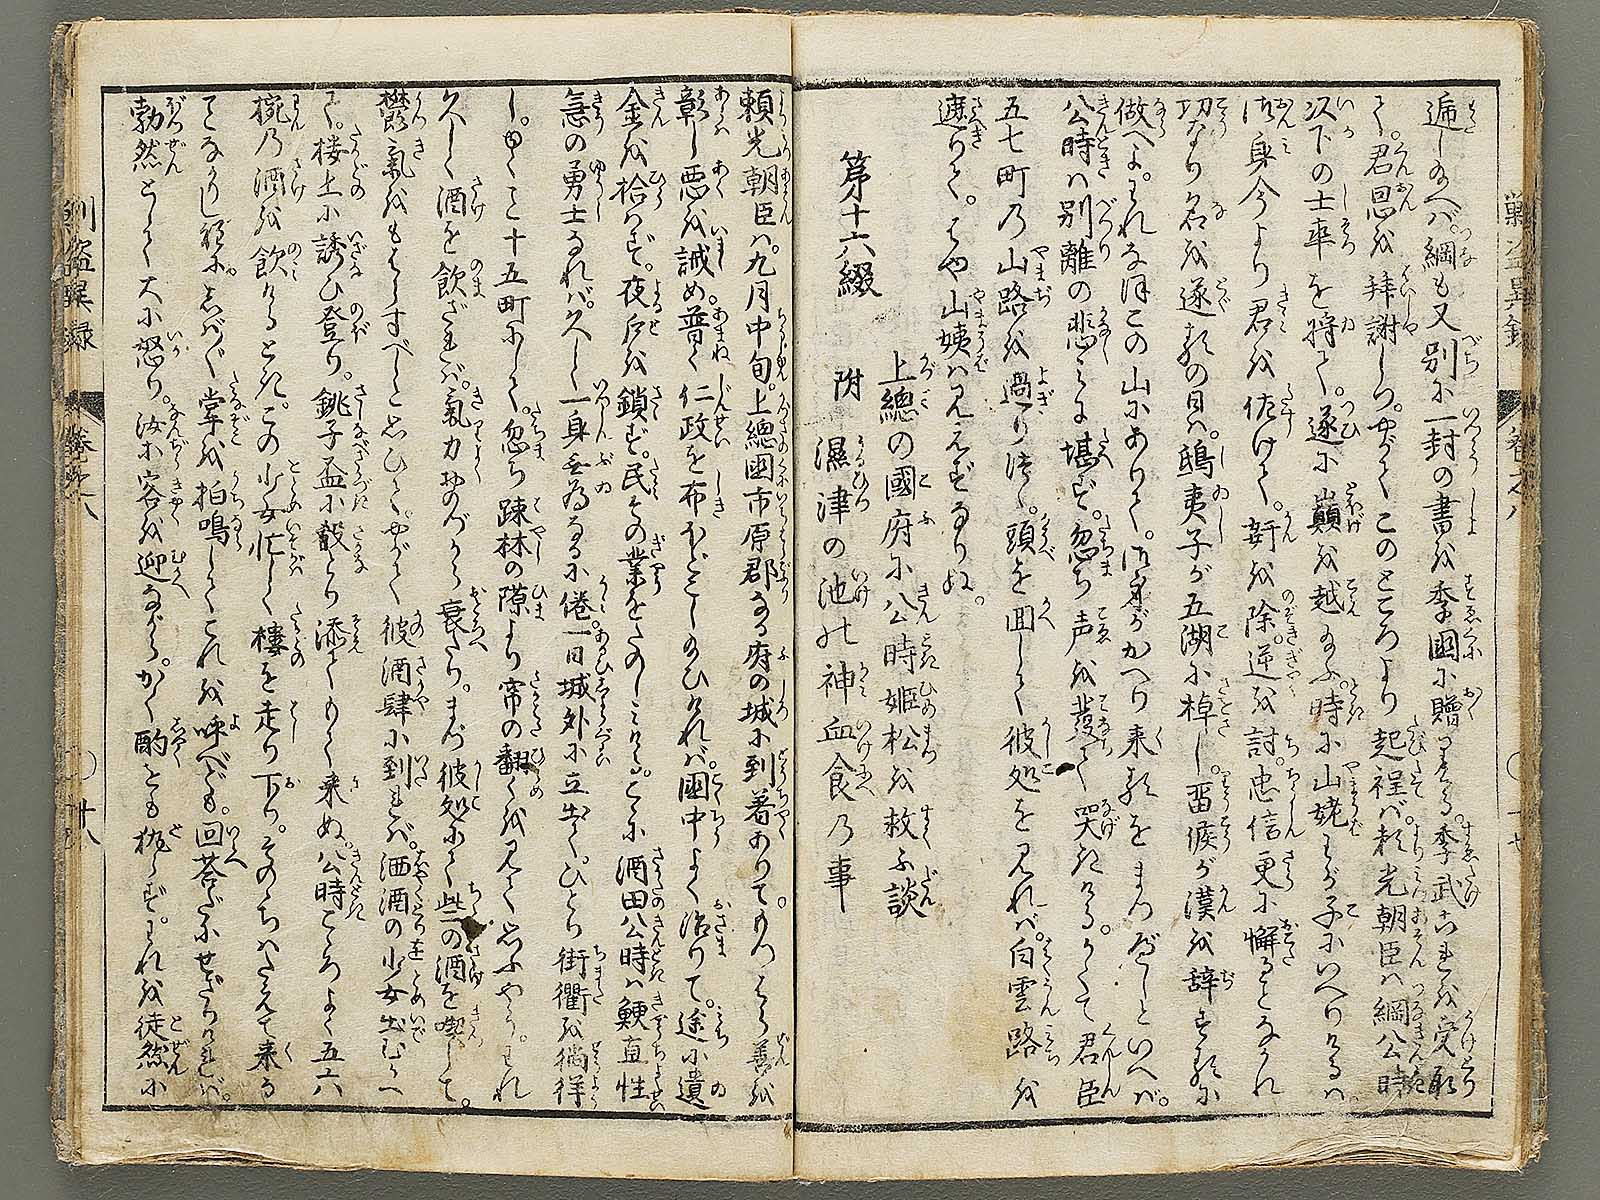 逓し給へバ。綱も又別に一封の書を季國に贈りける。季武これを受取
て。君恩を拝謝しつ。やがてこのところより起程バ。頼光朝臣ハ綱公時
以下の士卒を将て。遂に巓を越給ふ。時に山姥わが子にいへりけるハ
汝身今より君を佐けて。奸を除。逆を討。忠信更に懈ることなかれ
功なり名を遂るの日ハ。鴟夷子が五湖に棹し。留侯が漢を辞するに
做へよ。われなほこの山にありて。汝がかへり来るをまつべしといへバ。
公時ハ別離の悲しさに堪ず。忽ち声を発て哭にける。かくて君臣
五七町の山路を過り徃て。頭を回して彼処を見れバ。白雲路を
遮りて。はや山姨ハ見えずなりぬ。
第十六綴
上總の國府に公時姫松を救ふ談
附 濕津の池の神血食の事
頼光朝臣ハ。九月中旬。上總國市原郡なる府の城に到着ありて。もつはら善を
彰し悪を誡め。普く仁政を布ほどこし給ひければ。國中よく治りて。途に遺
金を拾はず。夜戸を鎖ず。民その業をたのしみける。こゝに酒田公時ハ鯁直性
急の勇士なれバ。久しく一身無為なるに倦。一日城外に立出て。ひとり街衢を徜徉
し。ゆくこと十五町にして。忽ち疎林の隙より帘の翻くを見て思ふやう。われ
久しく酒を飲ざれバ。氣力おのづから衰たり。まづ彼処にて些の酒を喫して。
欝氣をもはらすべしと思ひて。やがて彼酒肆に到れバ。洒酒の少女出むかへ
て。樓上に誘ひ登り。銚子盃に殽とり添てもて来ぬ。公時こゝろよく五六
椀の酒を飲けるとき。この少女忙しく樓を走り下り。そのゝちハたえて来る
ことなかりし程に。しば〳〵掌を拍鳴してこれを呼べども。回答だにせざりけれバ。
勃然として大に怒り。汝等客を迎ながら。かく酌をも執らず。われを徒然に
巻之八